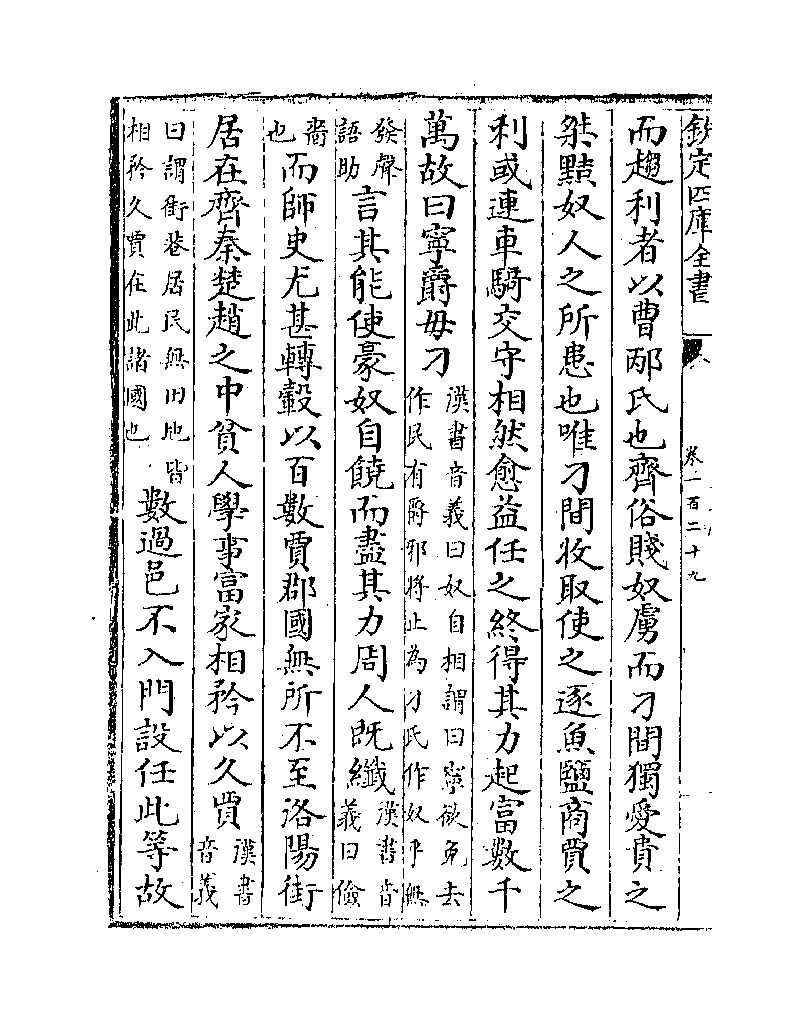 欽定四庫全書
卷一百二十九
而趨利者以曹邴氏也齊俗賤奴虜而刁間獨愛貴之
桀黠奴人之所患也唯刁間收取使之逐魚鹽商賈之
利或連車騎交守相然愈益任之終得其力起富數千
萬故曰寧爵毋刁漢書音義曰奴自相謂曰寧欲免去作民有爵邪將止為刁氏作奴乎無
發聲語助言其能使豪奴自饒而盡其力周人既纖漢書音義曰儉
嗇也而師史尤甚轉轂以百數賈郡國無所不至洛陽街
居在齊秦楚趙之中貧人學事富家相矜以久賈漢書音義
曰謂街巷居民無田地皆相矜久賈在此諸國也數過邑不入門設任此等故